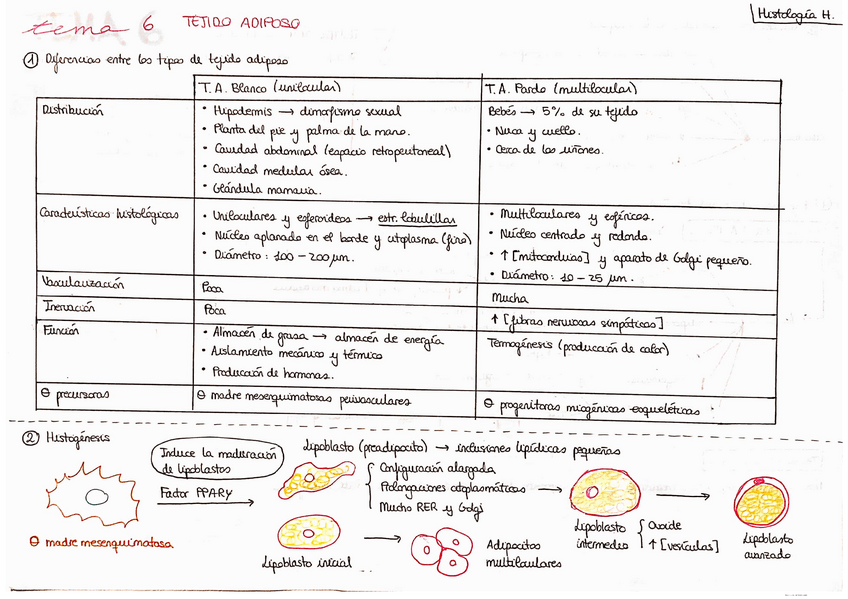 Histología H.
tema 6 TEJIDO ADIPOSO
① Diferencias entre los tipos de tejido adiposo
T.A. Blanco (unilocular)
T.A. Pardo (multilocular)
Distribución
• Hipodermis → dimorfismo sexual
• Planta del pie y palma de la mano.
• Cavidad abdominal (espacio retroperitoneal)
• Cavidad medular ósea.
• Glándula mamaria.
Bebés → 5% de su tejido
• Nuca y cuello.
• Cerca de los riñones.
Características histológicas
• Uniloculares y esferoideos → estr. lobulillar
• Núcleo aplanado en el borde y citoplasma (fino)
• Diámetro: 100 - 200 μm.
• Multiloculares y esféricos.
• Núcleo centrado y redondo.
• ↑ [mitocondrias] y aparato de Golgi pequeño.
• Diámetro: 10 - 25 μm.
Vascularización
Poca
Mucha
Inervación
Poca
↑ [fibras nerviosas simpáticas]
Función
• Almacén de grasa → almacén de energía
• Aislamiento mecánico y térmico
• Producción de hormonas.
Termogénesis (producción de calor)
Θ precursoras
Θ madre mesenquimatosas perivasculares
Θ progenitoras miogénicas esqueléticas
② Histogénesis
Induce la maduración
de lipoblastos
Factor PPARγ
Θ madre mesenquimatosa
Lipoblasto (preadipocito) → inclusiones lipídicas pequeñas
Configuración alargada
Prolongaciones citoplasmáticas
Mucho RER y Golgi
Lipoblasto inicial
Adipocitos
multiloculares
Lipoblasto
intermedio
Ovoide
↑ [vesículas]
Lipoblasto
avanzado